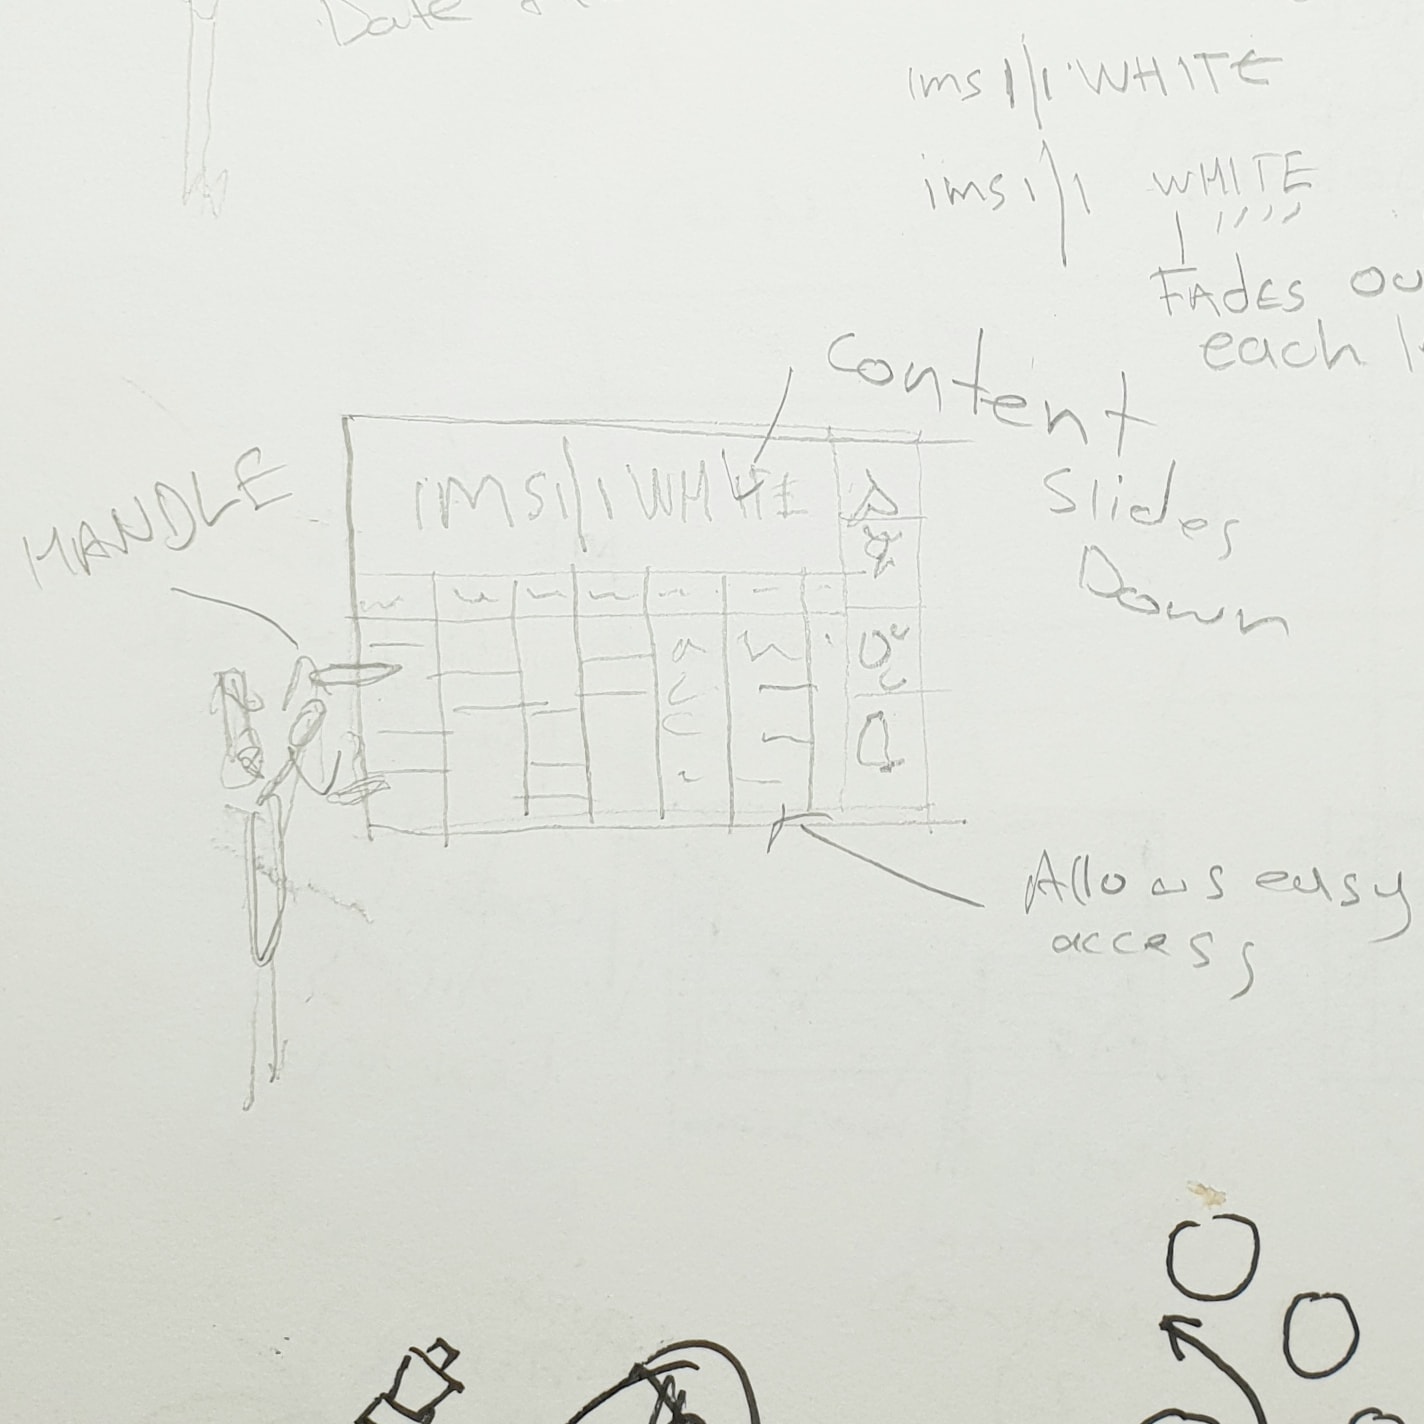 Date
ims1/1 WHITE
ims1/1 WHITE
FAdES OU
each
content
slides
Down
HANDLE
IMS1/1 WHITE
Allows easy
access